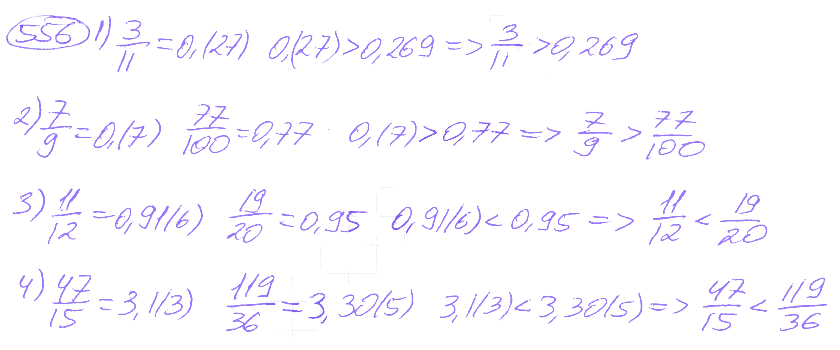 556 1) 3/11 = 0,(27) 0,(27) > 0,269 => 3/11 > 0,269
2) 7/9 = 0,(7) 77/100 = 0,77 0,(7) > 0,77 => 7/9 > 77/100
3) 11/12 = 0,91(6) 19/20 = 0,95 0,91(6) < 0,95 => 11/12 < 19/20
4) 47/15 = 3,1(3) 119/36 = 3,30(5) 3,1(3) < 3,30(5) => 47/15 < 119/36